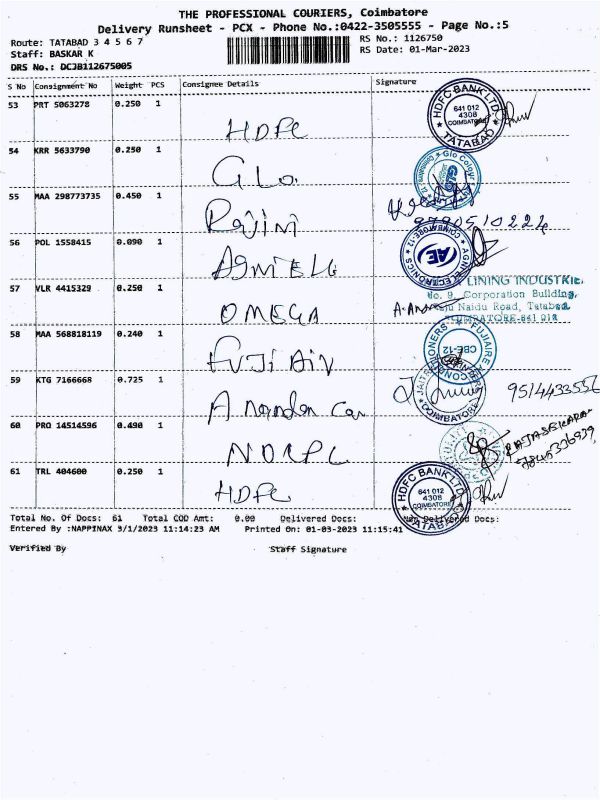 THE PROFESSIONAL COURIERS, Coimbatore
Delivery Runsheet - PCX - Phone No.:0422-3505555 - Page No.:5
Route: TATABAD 3 4 5 6 7
RS No.: 1126750
Staff: BASKAR K
RS Date: 01-Mar-2023
DRS No.: DCJB112675005
S No Consignment No Weight PCS Consignee Details Signature
53 PRT 5063278 0.250 1
HDFC
HDFC BANK LTD
641 012
4308
COIMBATORE
TATABAD
54 KRR 5633790 0.250 1
Glo
Glo Colour
55 MAA 298773735 0.450 1
Rajini
9790510224
56 POL 1558415 0.090 1
AGNI ELE
AGNI ELECTRONICS
COIMBATORE-12
AE
57 VLR 4415329 0.250 1
OMEGA
LINING INDUSTRIE
No. 9, Corporation Building,
Naidu Road, Tatabad,
COIMBATORE-641 012
58 MAA 568818119 0.240 1
FUJI Air
FUJIAIRE
CBE-12
59 KTG 7166668 0.725 1
Anandan Car
COIMBATORE
9514433556
60 PRO 14514596 0.490 1
RAJASEKARAN
61 TRL 404600 0.250 1
HDFC
HDFC BANK LTD
641 012
4308
COIMBATORE
TATABAD
Total No. Of Docs: 61 Total COD Amt: 0.00 Delivered Docs: Non Delivered Docs:
Entered By :NAPPINAX 3/1/2023 11:14:23 AM Printed On: 01-03-2023 11:15:41
Verified By Staff Signature